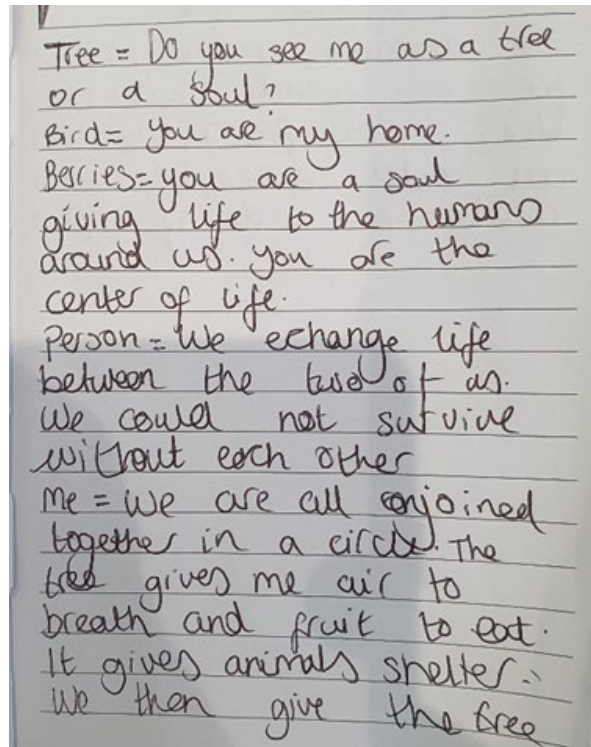 Tree = Do you see me as a tree
or a soul?
Bird = you are my home.
Berries = you are a soul
giving life to the humans
around us. you are the
center of life.
Person = We echange life
between the two of us.
We could not survive
without each other
Me = We are all conjoined
together in a circle. The
tree gives me air to
breath and fruit to eat.
It gives animals shelter.
We then give the tree